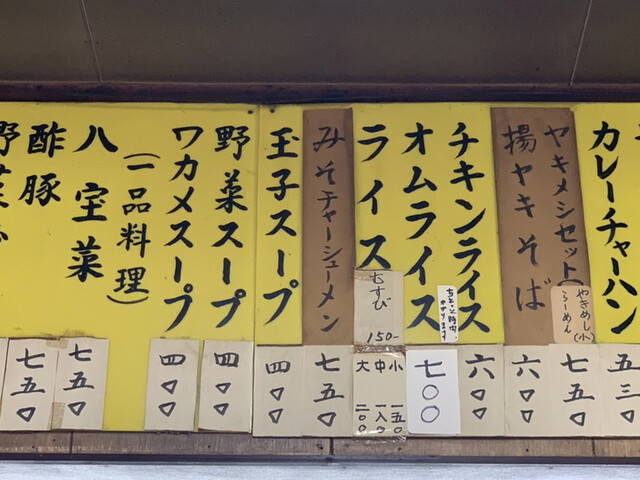 カレーチャーハン
五三〇
ヤキメシセット
やきめし(小)
らーめん
七五〇
揚ヤキそば
六〇〇
チキンライス
六〇〇
ちょっと時間
かかります
オムライス
七〇〇
ライス
むすび
150-
小 一五〇
中 一八〇
大 二〇〇
みそチャーシューメン
七五〇
玉子スープ
四〇〇
野菜スープ
四〇〇
ワカメスープ
四〇〇
(一品料理)
八宝菜
七五〇
酢豚
七五〇
野菜